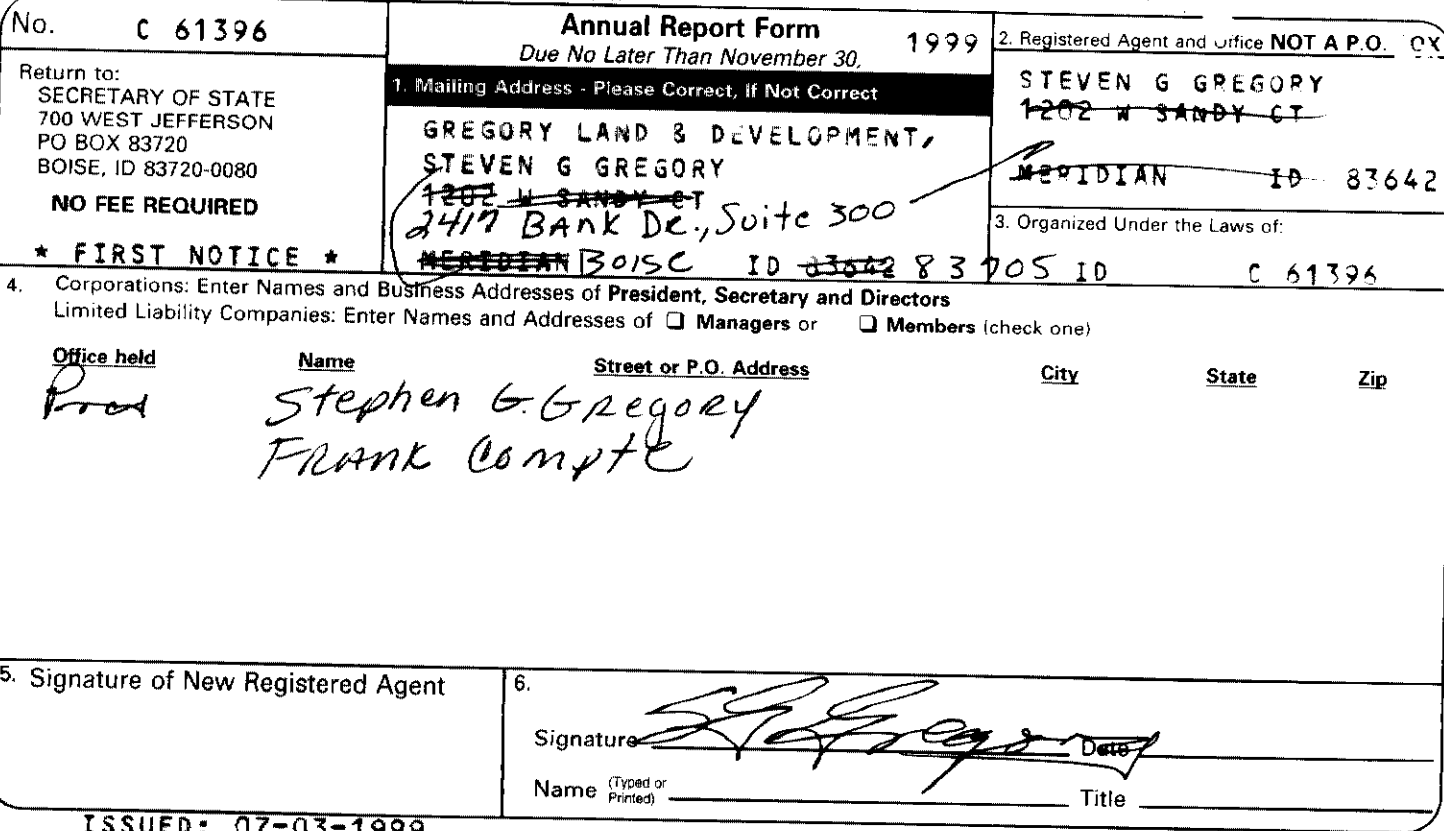 No. C 61396
Return to:
SECRETARY OF STATE
700 WEST JEFFERSON
PO BOX 83720
BOISE, ID 83720-0080
NO FEE REQUIRED
* FIRST NOTICE *
Annual Report Form 1999
Due No Later Than November 30,
1. Mailing Address - Please Correct, If Not Correct
GREGORY LAND & DEVELOPMENT,
STEVEN G GREGORY
1202 W SANDY CT
2417 BANK DR., Suite 300
MERIDIAN BOISE ID 83642 83705
2. Registered Agent and Office NOT A P.O. OX
STEVEN G GREGORY
1202 W SANDY CT
MERIDIAN ID 83642
3. Organized Under the Laws of:
ID C 61396
4. Corporations: Enter Names and Business Addresses of President, Secretary and Directors
Limited Liability Companies: Enter Names and Addresses of ❑ Managers or ❑ Members (check one)
Office held Name Street or P.O. Address City State Zip
Pres Stephen G. Gregory
FRANK Compte
5. Signature of New Registered Agent
6.
Signature SG Gregory Date
Name (Typed or Printed) Title
ISSUED: 07-03-1999